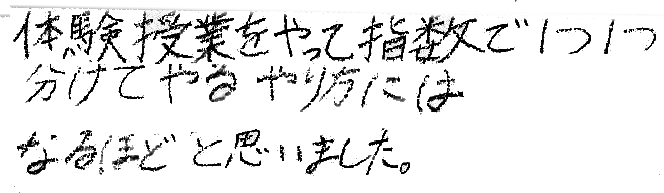 体験授業をやって指数で1つ1つ
分けてやるやり方には
なるほどと思いました。